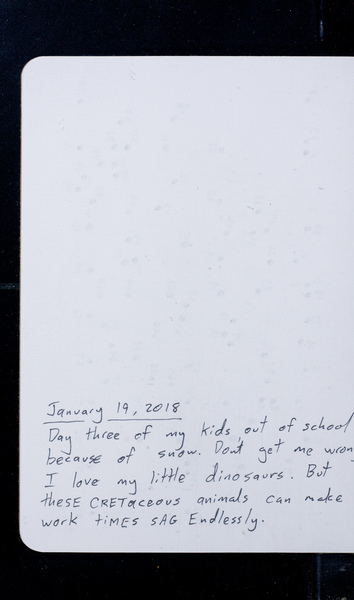 January 19, 2018
Day three of my kids out of school
because of snow. Don't get me wron
I love my little dinosaurs. But
theSE CRETaceous animals can make
work tiMES SAG Endlessly.